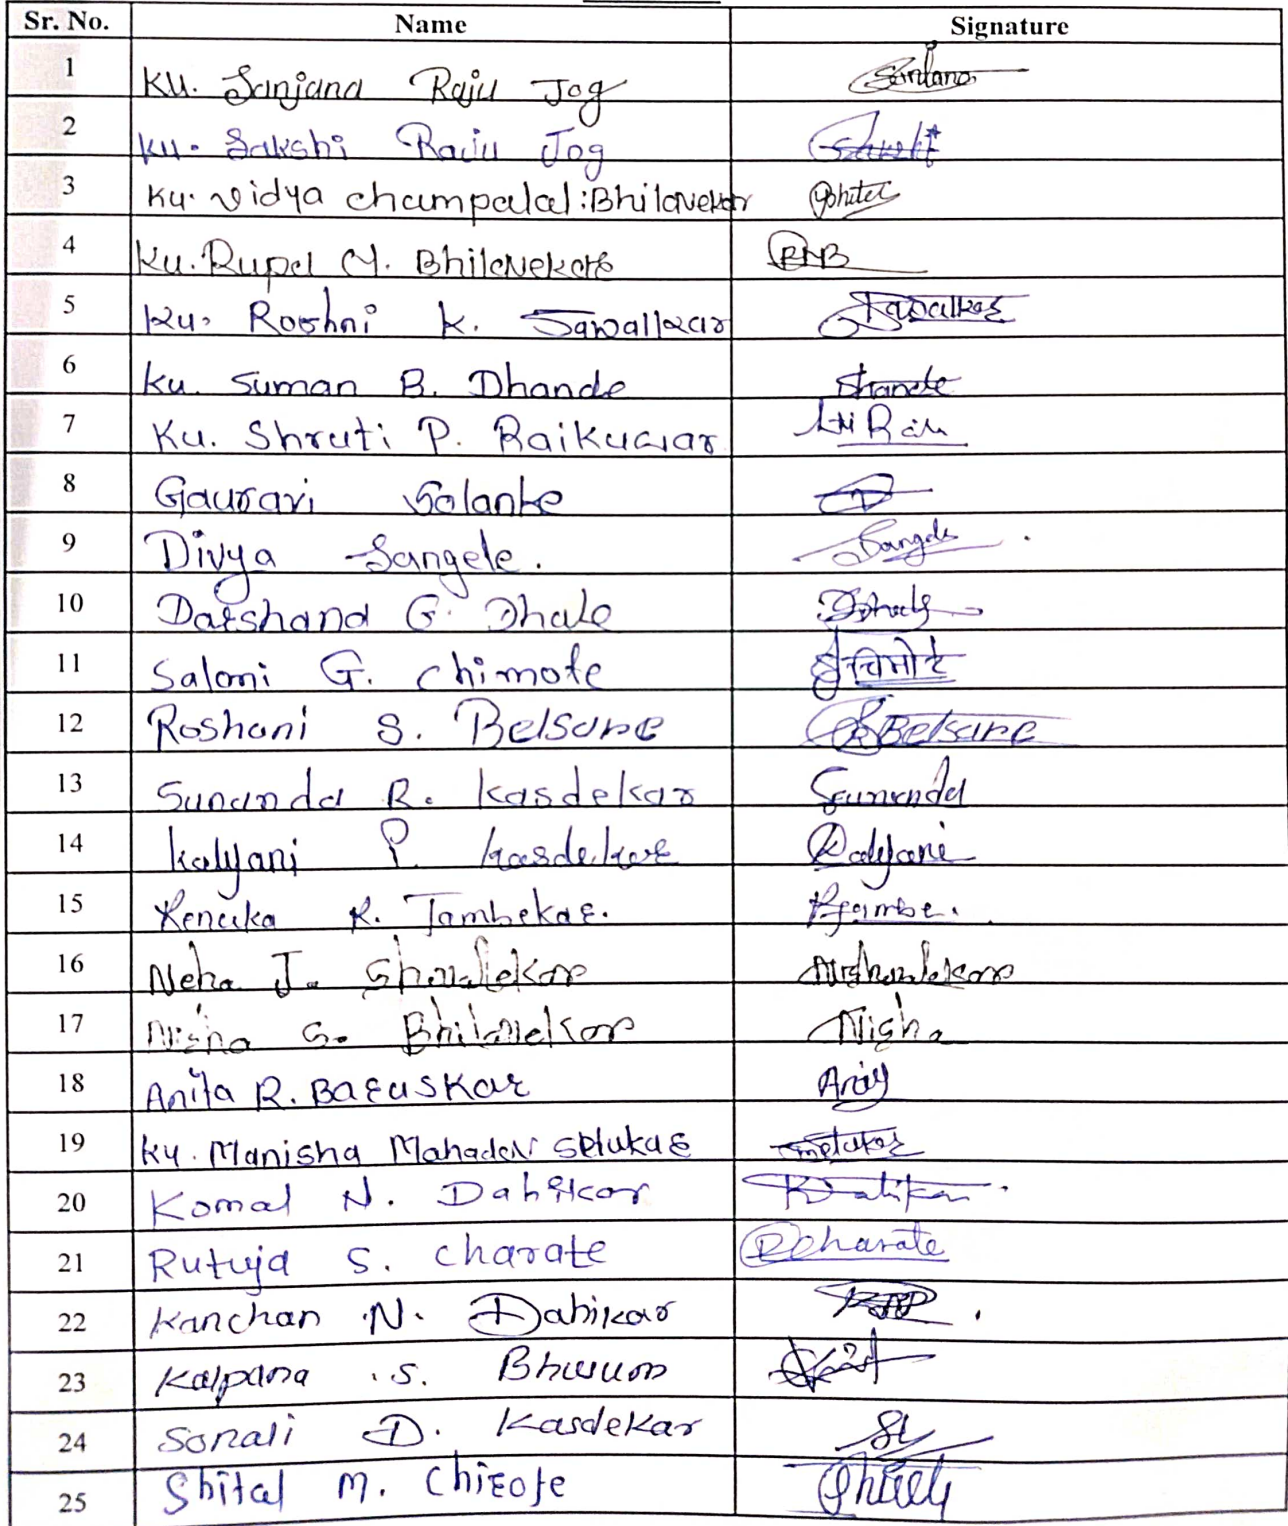 Sr. No. Name Signature
1 Ku. Sanjana Raju Jog
2 Ku. Sakshi Raju Jog
3 Ku. Vidya champalal Bhilavekar
4 Ku. Rupal M. Bhilavekar RMB
5 Ku. Roshni K. Sawalkar Sawalkar
6 Ku. Suman B. Dhande Dhande
7 Ku. Shruti P. Raikuwar
8 Gauravi Solanke
9 Divya Sangele. Sangele
10 Darshana G. Dhale
11 Saloni G. Chimote चिमोटे
12 Roshani S. Belsare Belsare
13 Sunanda R. Kasdekar Sunanda
14 Kalyani P. Kasdekar Kalyani
15 Renuka R. Tambekar.
16 Neha J. Shanlekar
17 Nisha G. Bhilavekar Nisha
18 Anita R. Baruskar
19 Ku. Manisha Mahadev Selukar Selukar
20 Komal N. Dahikar
21 Rutuja S. Charate Rcharate
22 Kanchan N. Dahikar
23 Kalpana S.
24 Sonali D. Kasdekar
25 Shital M. Chirote